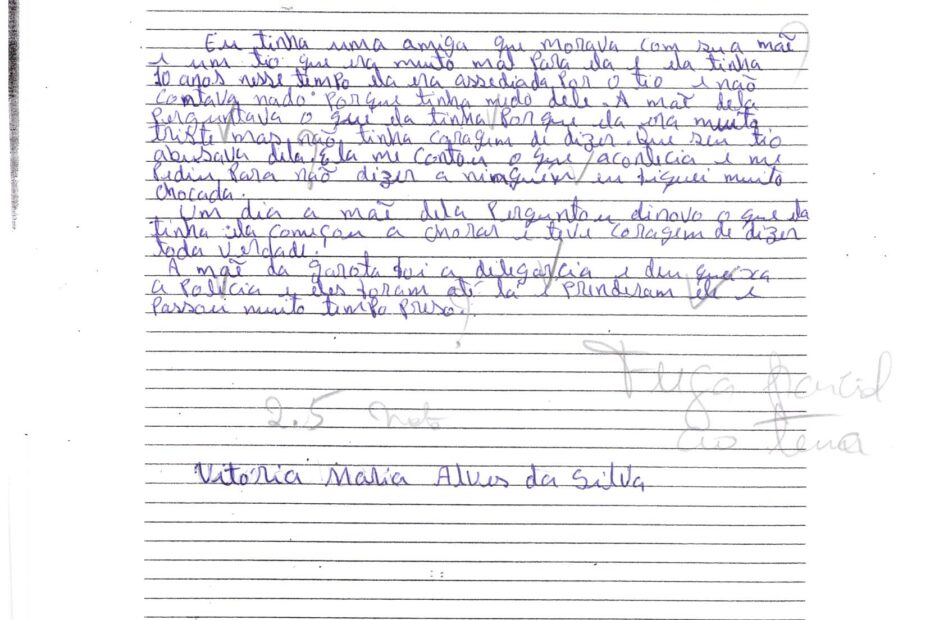 Eu tinha uma amiga que morava com sua mãe
e um tio que era muito mal para ela e ela tinha
10 anos nesse tempo ela era assediada por o tio e não
contava nado porque tinha medo dele. A mãe dela
perguntava o que ela tinha porque ela era muito
triste mas não tinha coragem de dizer. Que seu tio
abusava dela, Ela me contou o que aconticia e me
pediu para não dizer a ninguém eu fiquei muito
chocada.
Um dia a mãe dela perguntou dinovo o que ela
tinha ela começou a chorar e teve coragem de dizer
toda verdade.
A mãe da garota foi a delegarcia e deu queixa
a polícia e eles foram até lá e prinderam ele e
passou muito tempo preso.
Fuga parcial
ao tema
2.5 Nota
Vitória Maria Alves da Silva